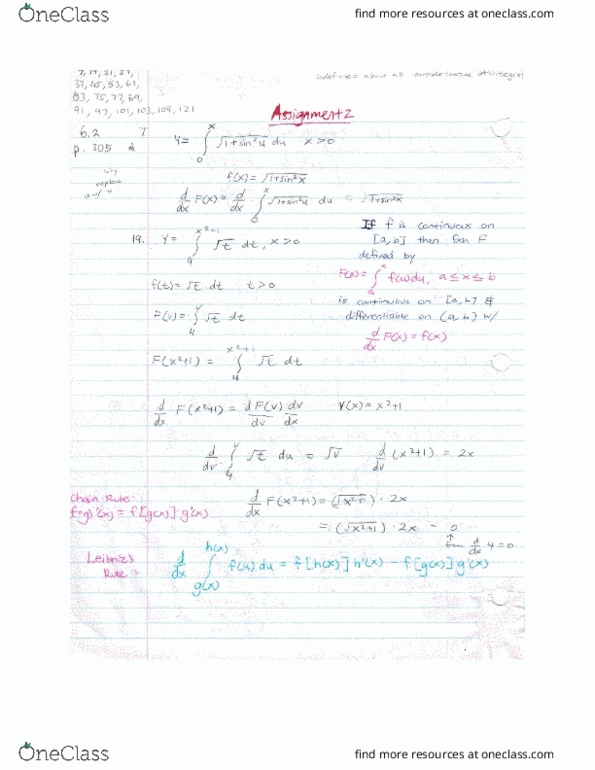 OneClass
find more resources at oneclass.com
7, 19, 21, 27,
37, 45, 53, 61,
63, 75, 77, 89,
91, 97, 101, 103, 109, 121
Indefinite about all antiderivative of integral
Assignment 2
6.2
p. 305
7. Y = ∫_0^x √(1+sin²u) du x > 0
why
replace
f(x) = √(1+sin²x)
d/dx F(x) = d/dx ∫_0^x √(1+sin²u) du = √(1+sin²x)
19. Y = ∫_4^{x²+1} √t dt, x > 0
If f is continuous on
[a, b] then fxn F
defined by
F(x) = ∫_a^x f(u) du, a ≤ x ≤ b
is continuous on [a, b] &
differentiable on (a, b) w/
d/dx F(x) = f(x)
f(t) = √t dt t > 0
F(v) = ∫_4^v √t dt
F(x²+1) = ∫_4^{x²+1} √t dt
d/dx F(x²+1) = dF(v)/dv dv/dx V(x) = x²+1
d/dv ∫_4^v √t du = √v d/dv (x²+1) = 2x
Chain Rule:
f∘g)'(x) = f[g(x)] g'(x)
d/dx F(x²+1) = (√x²+1) · 2x
= (√x²+1) · 2x - 0
↑
from d/dx 4 = 0
Leibniz's
Rule:
d/dx ∫_{g(x)}^{h(x)} f(u) du = f[h(x)] h'(x) - f[g(x)] g'(x)
OneClass
find more resources at oneclass.com